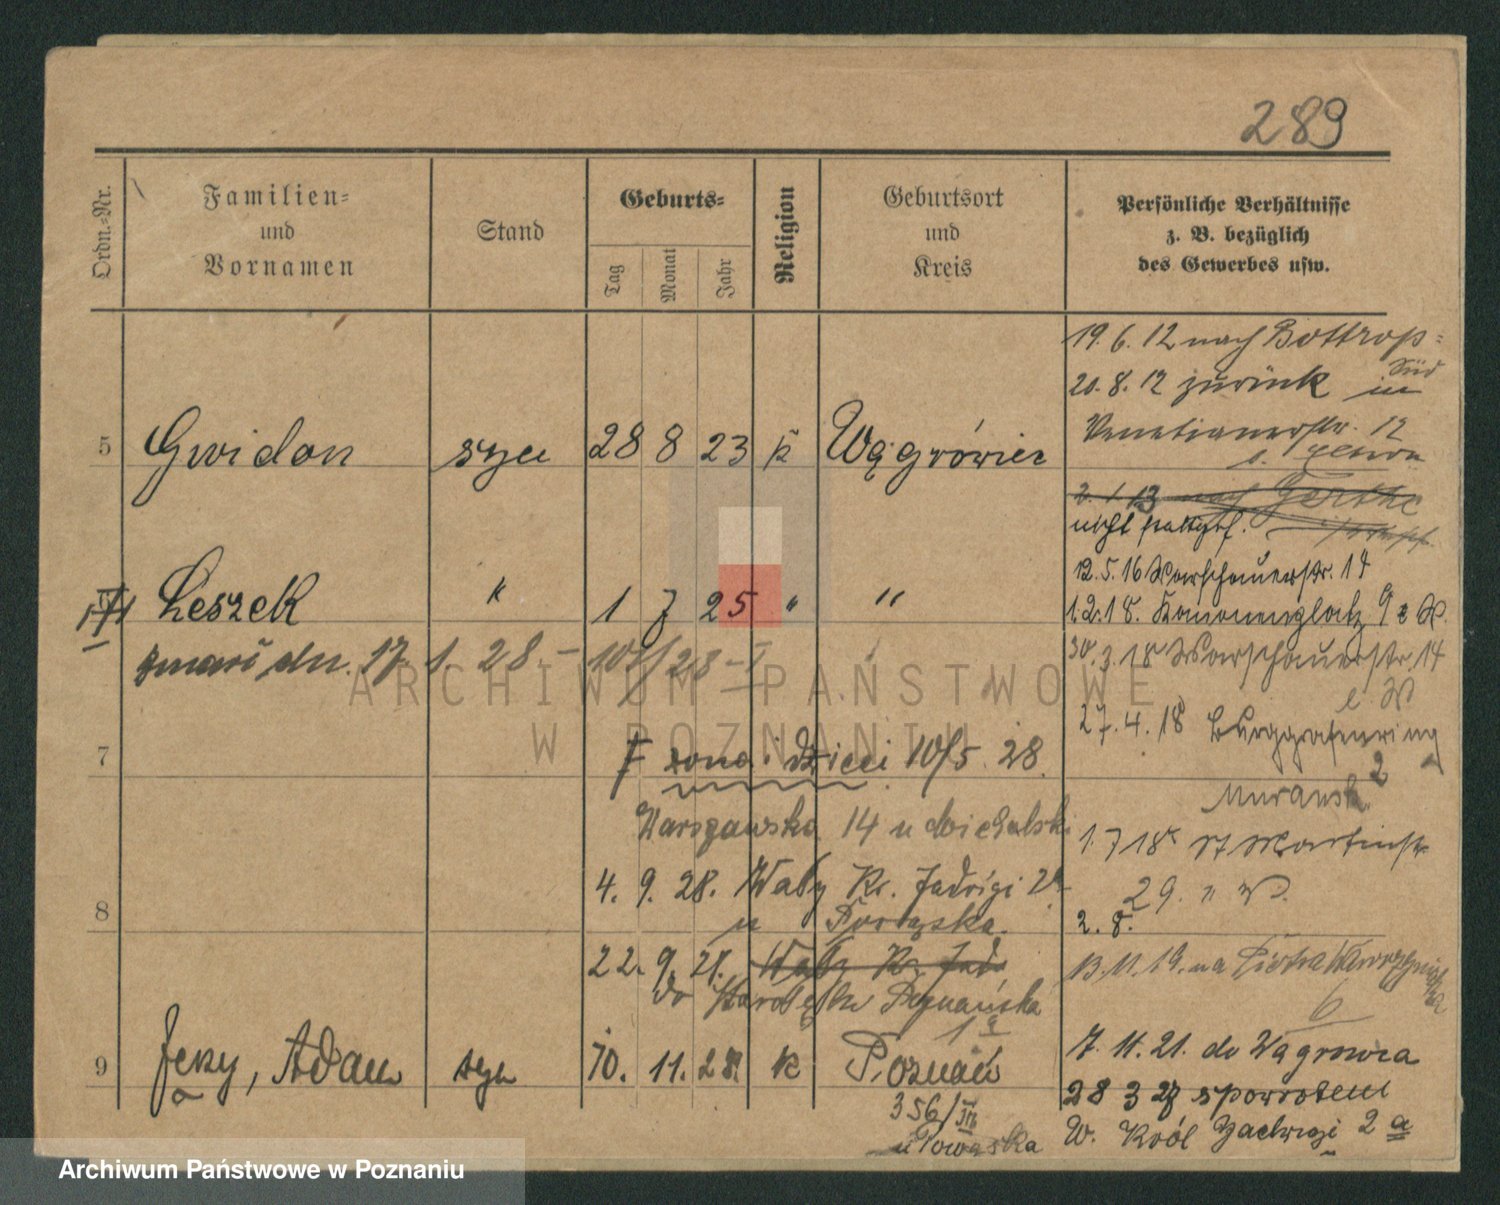 289
Ordn.-Nr.
Familien-
und
Vornamen
Stand
Geburts-
Tag
Monat
Jahr
Religion
Geburtsort
und
Kreis
Persönliche Verhältnisse
z. B. bezüglich
des Gewerbes usw.
5 Gwidon syn 28 8 23 k Wągrówiec
Leszek " 1 7 25 " "
zmarł dn. 17. 1. 28. –
7
żona i dzieci 10/5 28.
Warszawska 14 u
4. 9. 28. Wały Kr. Jadwigi
8
u
22. 9. 28. Wały Kr. Jad.
do Starołęka Poznańska
9 Jerzy, Adam syn 10. 11. 28. k Poznań
356/III
19. 6. 12 nach Bottrop-
Süd
20. 8. 12 zurück in
Venetianerstr. 12
2. 1 13 nach Gerthe
nicht
12. 5. 16 Warschauerstr. 14
1. 2. 18. Kanonenplatz 9
30. 3. 18 Warschauerstr. 14
27. 4. 18 Burggrafenring
2
1. 7 18 St Martinstr
29.
2. 8.
13. 11. 19. na Piotra Wawrzyniaka
6
7. 11. 21. do Wągrowca
28 3 27 spowrotem
W. Król Jadwigi 2 a
ARCHIWUM PAŃSTWOWE
W POZNANIU
Archiwum Państwowe w Poznaniu